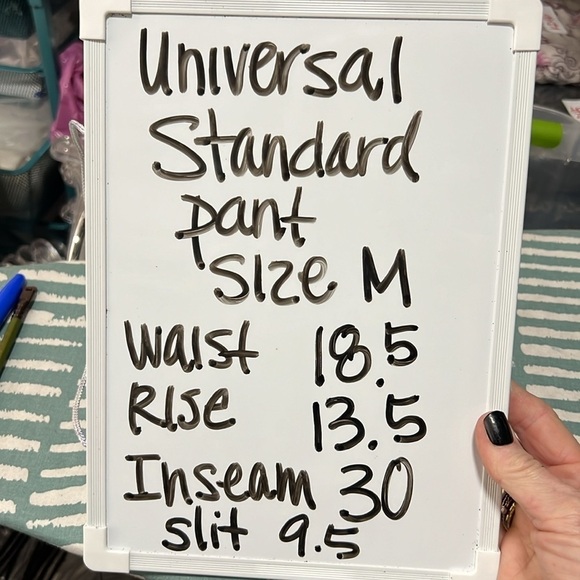 Universal
Standard
pant
size M
Waist 18.5
Rise 13.5
Inseam 30
slit 9.5